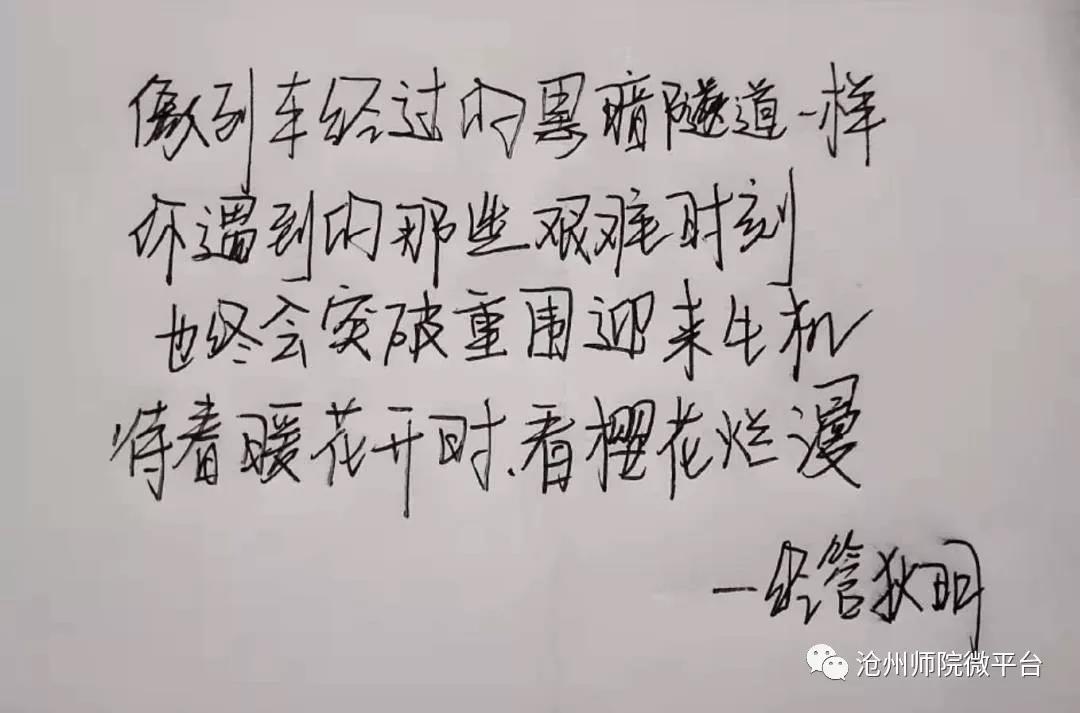 像列车经过的黑暗隧道一样
你遇到的那些艰难时刻
也终会突破重围迎来生机
待春暖花开时、看樱花烂漫
—经管狄明
沧州师院微平台